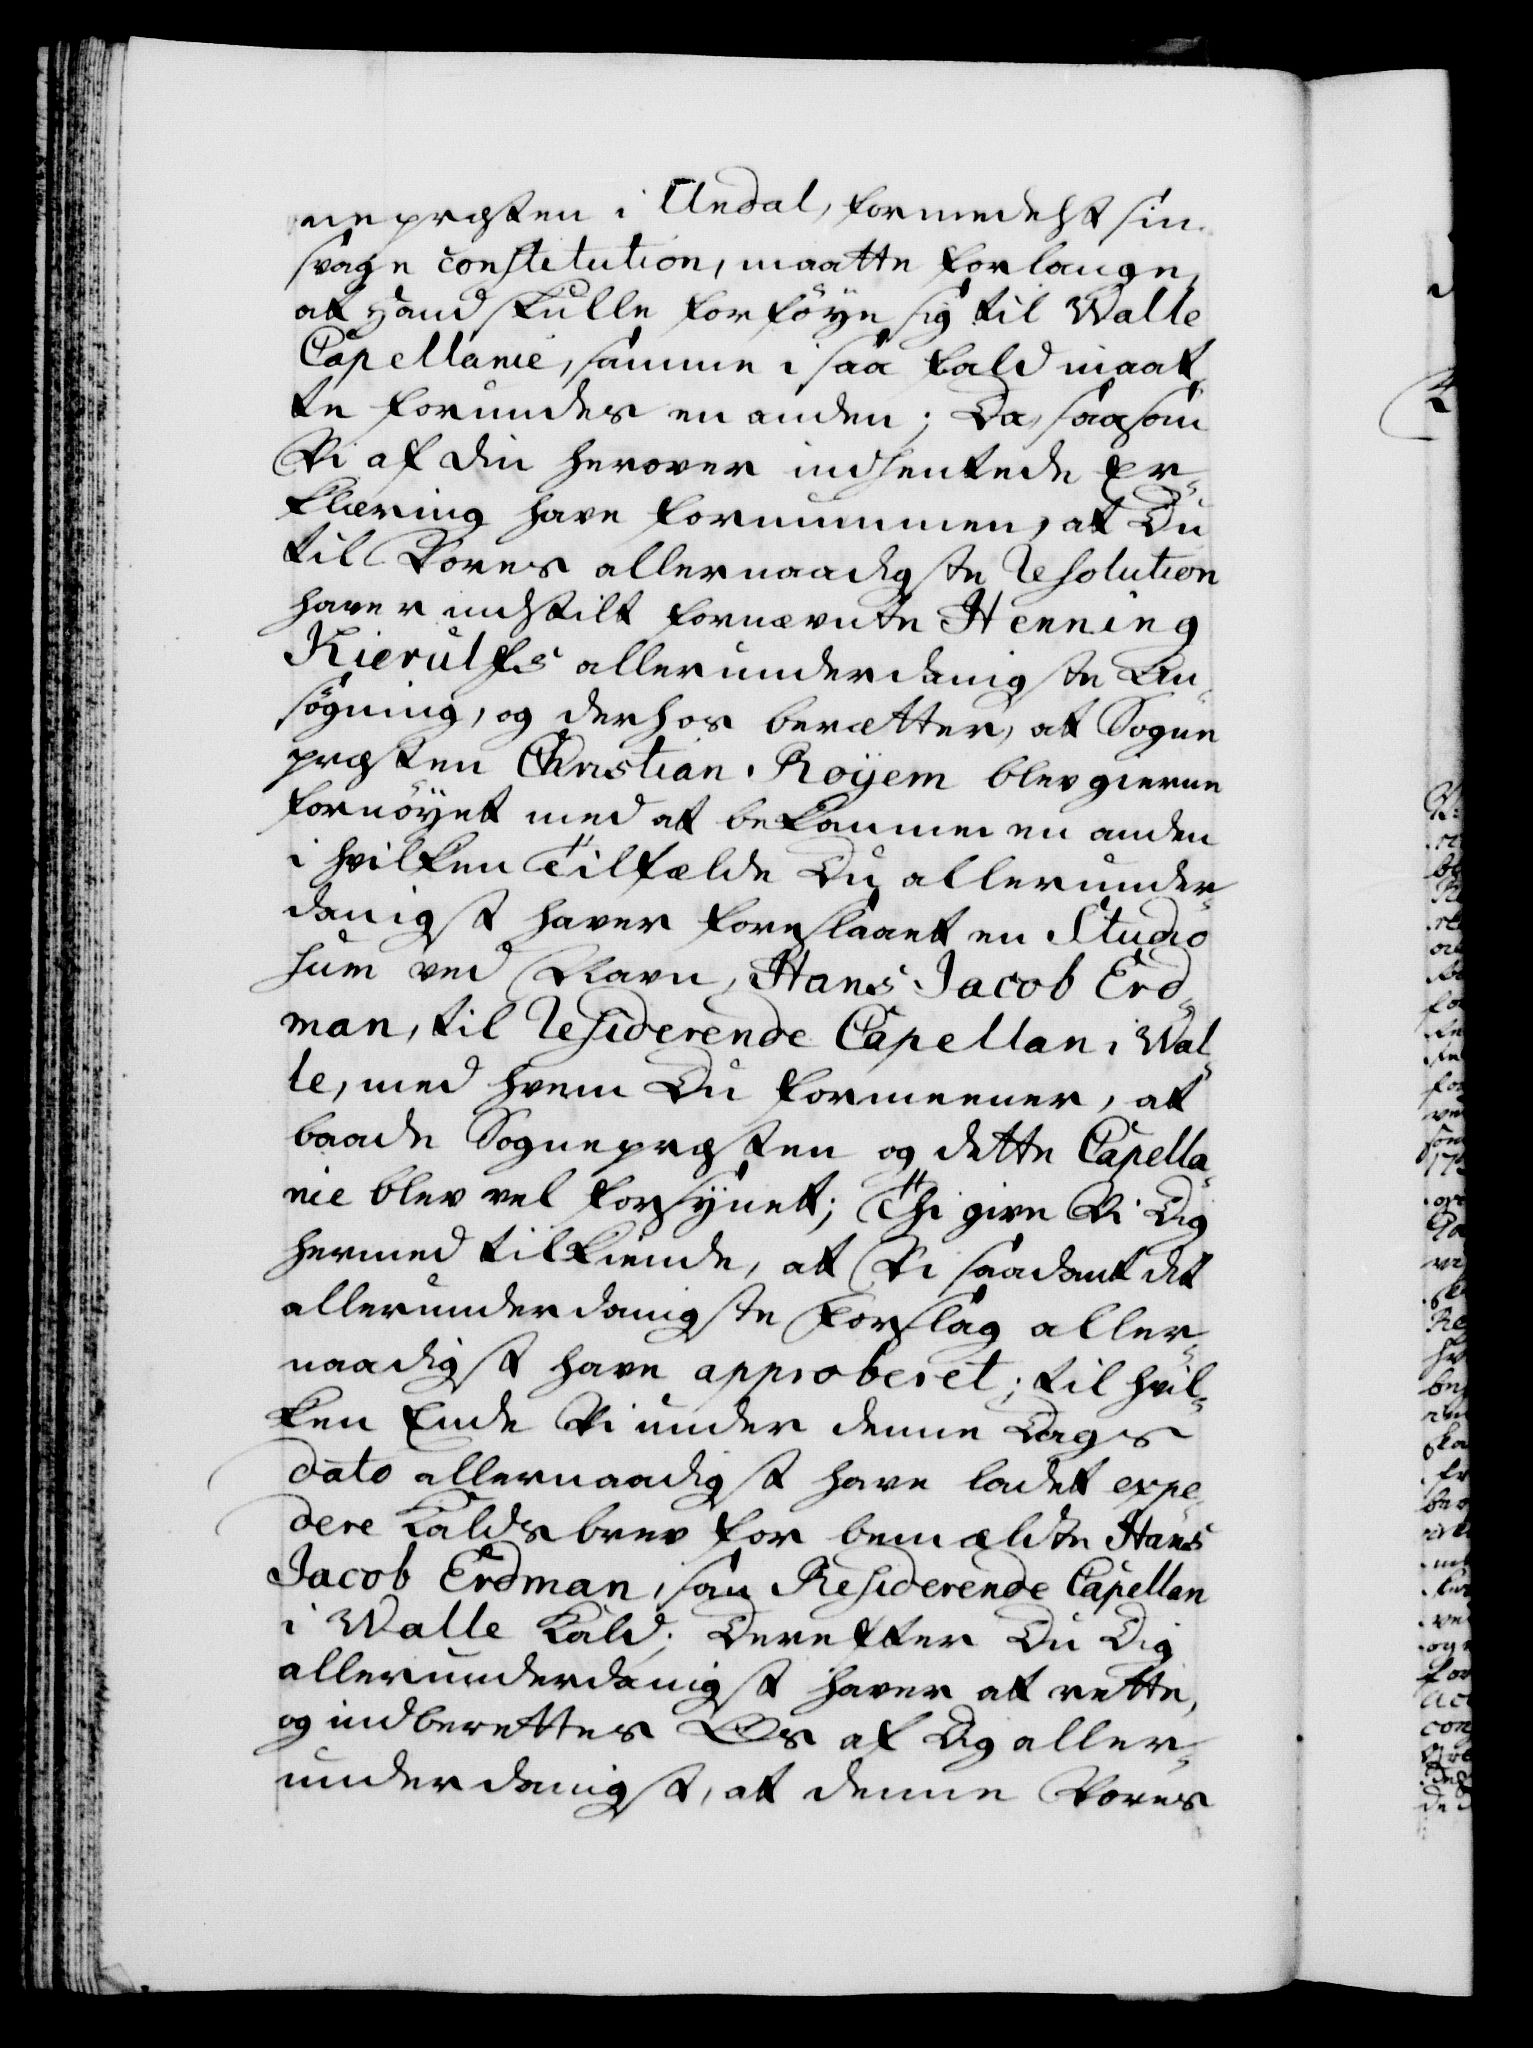 nepræsten i Undal, formedelst sin
svage constitution, maatte forlange,
at hand skulle forföye sig til Walle
Capellanie, samme i saa fald maat
te forundes en anden; Da, saasom
Vi af din herover indhentede Er-
klæring have fornummen, at Du
til Vores allernaadigste Resolution
haver indstilt fornævnte Henning
Kierulfs allerunderdanigste An-
søgning, og derhos berætter, at Sogne
præsten Christian Röyem blev gierne
fornöyet med at bekomme en anden
i hvilken Tilfælde Du allerunder-
danigst haver foreslaaet en Studio
sum ved Navn, Hans Jacob Erd-
man, til Residerende Capellan i Wal-
le, med hvem Du formeener, at
baade Sognepræsten og dette Capella-
nie blev vel forsÿnet; Thi give Vi Dig
hermed tilkiende, at Vi saadant dit
allerunderdanigste Forslag aller-
naadigst have approberet; til hvil-
ken Ende Vi under denne Dags
dato allernaadigst have ladet expe-
dere Kaldsbrev for bemældte Hans
Jacob Erdman, som Residerende Capellan
i Walle Kald; Derefter Du Dig
allerunderdanigst haver at rette,
og indberettes Os af Dig aller-
underdanigst, at denne Vores